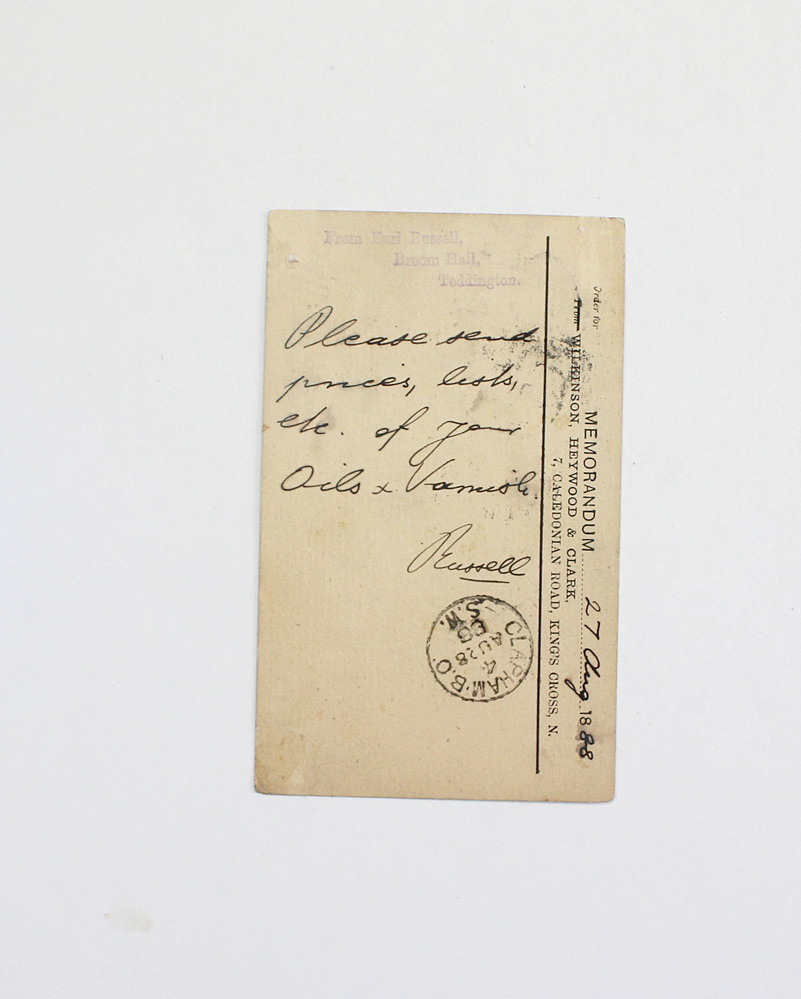 From Earl Russell,
Broom Hall,
Teddington.
Please send
prices, lists,
etc. of your
Oils & Varnish.
Russell
Order for
MEMORANDUM 27 Aug 1888
From WILKINSON, HEYWOOD & CLARK,
7, CALEDONIAN ROAD, KING'S CROSS, N.
CLAPHAM B.O.
4
AU 28
88
S.W.